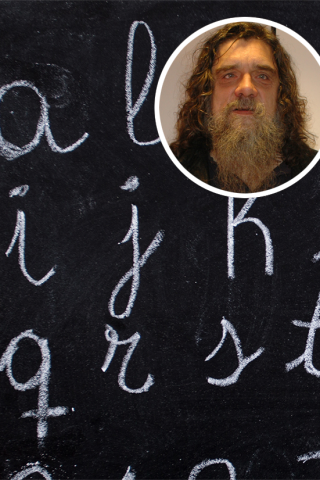 a l
i j k
q r s t